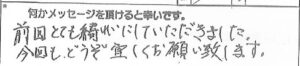 *
何かメッセージを頂けると幸いです。
前回とても綺れいにしていただきました。
今回も、どうぞ宜しくお願い致します。